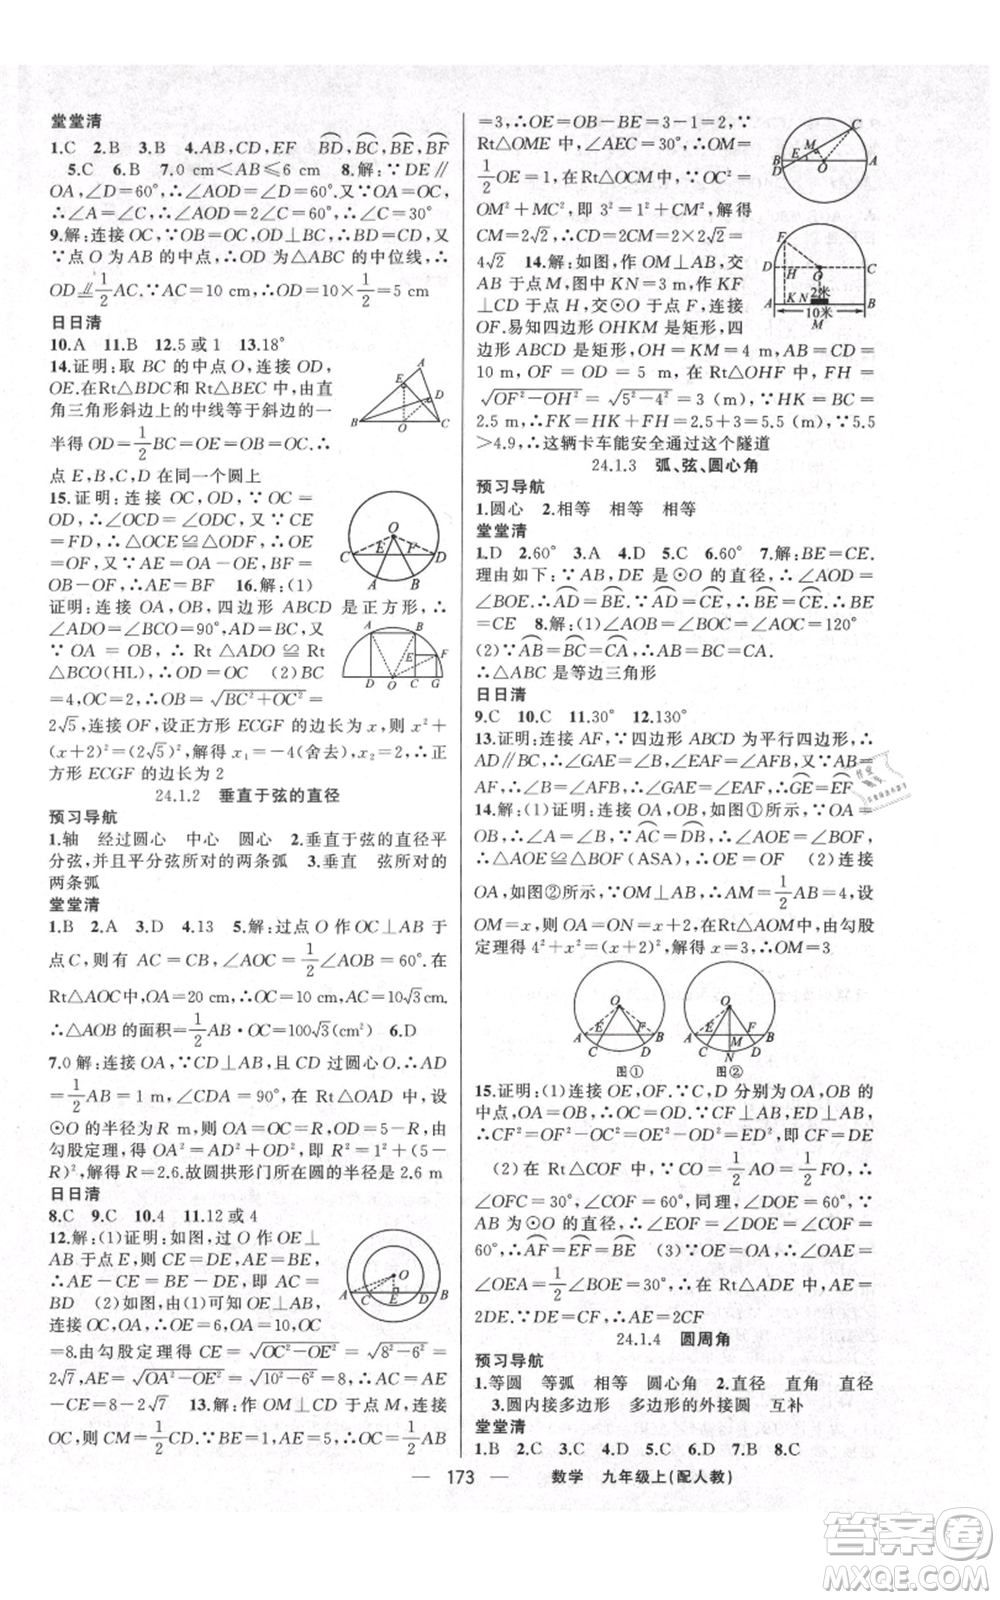 堂堂清
1.C 2.B 3.B 4.AB,CD,EF BD,BC,BE,BF
5.C 6.B 7.0 cm<AB≤6 cm 8.解:∵DE∥
OA,∠D=60°,∴∠AOD=∠D=60°.又∵OA=OC,
∴∠A=∠C,∴∠AOD=2∠C=60°,∴∠C=30°
9.解:连接 OC,∵OB=OC,OD⊥BC,∴BD=CD,又
∵点 O 为 AB 的中点,∴OD 为△ABC 的中位线,∴
OD∥=1/2 AC.∵AC=10 cm,∴OD=10×1/2=5 cm
日日清
10.A 11.B 12.5 或 1 13.18°
14.证明:取 BC 的中点 O,连接 OD,
OE.在Rt△BDC和Rt△BEC中,由直
角三角形斜边上的中线等于斜边的一
半得 OD=1/2BC=OE=OB=OC,∴
点 E,B,C,D 在同一个圆上
15.证明:连接 OC,OD,∵OC=
OD,∴∠OCD=∠ODC,又∵CE
=FD,∴△OCE≌△ODF,∴OE=
OF,∴AE=BF 16.解:(1)
证明:连接 OA,OB,四边形 ABCD 是正方形,∴
∠ADO=∠BCO=90°,AD=BC,又
∵OA=OB,∴Rt△ADO≌Rt
△BCO(HL),∴OD=OC (2)BC
=4,OC=2,∴OB=√BC²+OC²=
2√5,连接 OF,设正方形 ECGF 的边长为 x,则 x²+
(x+2)²=(2√5)²,解得 x₁=-4(舍去),x₂=2,∴正
方形 ECGF 的边长为 2
24.1.2 垂直于弦的直径
预习导航
1.轴 经过圆心 中心 圆心 2.垂直于弦的直径平
分弦,并且平分弦所对的两条弧 3.垂直 弦所对的
两条弧
堂堂清
1.B 2.A 3.D 4.13 5.解:过点 O 作 OC⊥AB 于
点 C,则有 AC=BC,∠AOC=1/2∠AOB=60°.在
Rt△AOC中,OA=20 cm,∴OC=10 cm,AC=10√3cm.
∴△AOB 的面积=1/2AB·OC=100√3(cm²) 6.D
7.0 解:连接 OA,∵CD⊥AB,且 CD 过圆心 O,∴AD
=1/2AB=1 m,∠CDA=90°,在 Rt△OAD 中,设
⊙O 的半径为 R,则 OA=OC=R,OD=5-R,由
勾股定理,得 OA²=AD²+OD²,即 R²=1²+(5-
R)²,解得 R=2.6.故圆拱形门所在圆的半径是 2.6 m
日日清
8.C 9.C 10.4 11.12 或 4
12.解:(1)证明:如图,过 O 作 OE⊥
AB 于点 E,则 CE=DE,AE=BE,
∴AE-CE=BE-DE,即 AC=
BD (2)如图,由(1)可知 OE⊥AB,
连接 OC,OA,∴OE=6,OC=8,OA=10
=8.由勾股定理得 CE=√OC²-OE²=√8²-6²=
2√7,AE=√OA²-OE²=√10²-6²=8,∴AC=
AE-CE=8-2√7 13.解:作 OM⊥CD 于点 M,连接
OC,则 CM=1/2CD.∵BE=1,AE=5,∴OC=1/2AB
=3,∴OE=OB-BE=3-1=2,∵
Rt△OME 中,∠AEC=30°,∴OM=
1/2OE=1,在 Rt△OCM 中,∵OC²=
OM²+MC²,即 3²=1²+CM²,解得
CM=2√2,∴CD=2CM=2×2√2=
4√2 14.解:如图,作 OM⊥AB,交
AB 于点 M,图中 KN=3 m,作 KF
⊥CD 于点 H,交⊙O 于点 F,连接
OF.易知四边形 OHKM 是矩形,四
边形 ABCD 是矩形,OH=KM=4 m,AD=CB=
10 m,OF=OD=5 m,在Rt△OHF 中,FH=
√OF²-OH²=√5²-4²=3(m),∵HK=BC=
2.5 m,∴FK=HK+FH=2.5+3=5.5(m),∵5.5
>4.9,∴这辆卡车能安全通过这个隧道
24.1.3 弧、弦、圆心角
预习导航
1.圆心 2.相等 相等 相等
堂堂清
1.D 2.60° 3.A 4.D 5.C 6.60° 7.解:BE=CE.
理由如下:∵AB,DE 是⊙O 的直径,∴∠AOD=
∠BOE.∴AD=BE.∵AD=CE,∴BE=CE.∴BE
=CE 8.解:(1)∠AOB=∠BOC=∠AOC=120°
(2)∵∠AOB=∠BOC=∠AOC,∴AB=BC=CA.
∴△ABC 是等边三角形
日日清
9.C 10.C 11.30° 12.130°
13.证明:连接 AF,∵四边形 ABCD 为平行四边形,∴
AD∥BC,∴∠GAE=∠B,∠EAF=∠AFB,又∵AB=
AF,∴∠B=∠AFB,∴∠GAE=∠EAF,∴GE=EF
14.解:(1)证明:连接 OA,OB,如图①所示,∵OA=
OB,∴∠A=∠B,∵AC=DB,∴∠AOE=∠BOF,
∴△AOE≌△BOF(ASA),∴OE=OF (2)连接
OA,如图②所示,∵OM⊥AB,∴AM=1/2AB=4,设
OM=x,则 OA=ON=x+2,在Rt△AOM中,由勾股
定理得 4²+x²=(x+2)²,解得 x=3,∴OM=3
图① 图②
15.证明:(1)连接 OE,OF.∵C,D 分别为 OA,OB 的
中点,OA=OB,∴OC=OD.∵CF⊥AB,ED⊥AB,
∴CF²=OF²-OC²=OE²-OD²=ED²,即 CF=DE
(2)在 Rt△COF 中,∵CO=1/2AO=1/2FO,∴
∠OFC=30°,∠COF=60°,同理,∠DOE=60°,∵
AB 为⊙O 的直径,∴∠EOF=∠DOE=∠COF=
60°,∴AF=EF=BE (3)∵OE=OA,∴
∠OEA=1/2∠BOE=30°,∴在 Rt△ADE 中,AE=
2DE.∵DE=CF,∴AE=2CF
24.1.4 圆周角
预习导航
1.等圆 等弧 相等 圆心角 2.直径 直角 直径
3.圆内接多边形 多边形的外接圆 互补
堂堂清
1.B 2.C 3.C 4.D 5.D 6.B 7.B 8.C
— 173 — 数学 九年级上(配人教)
答案卷